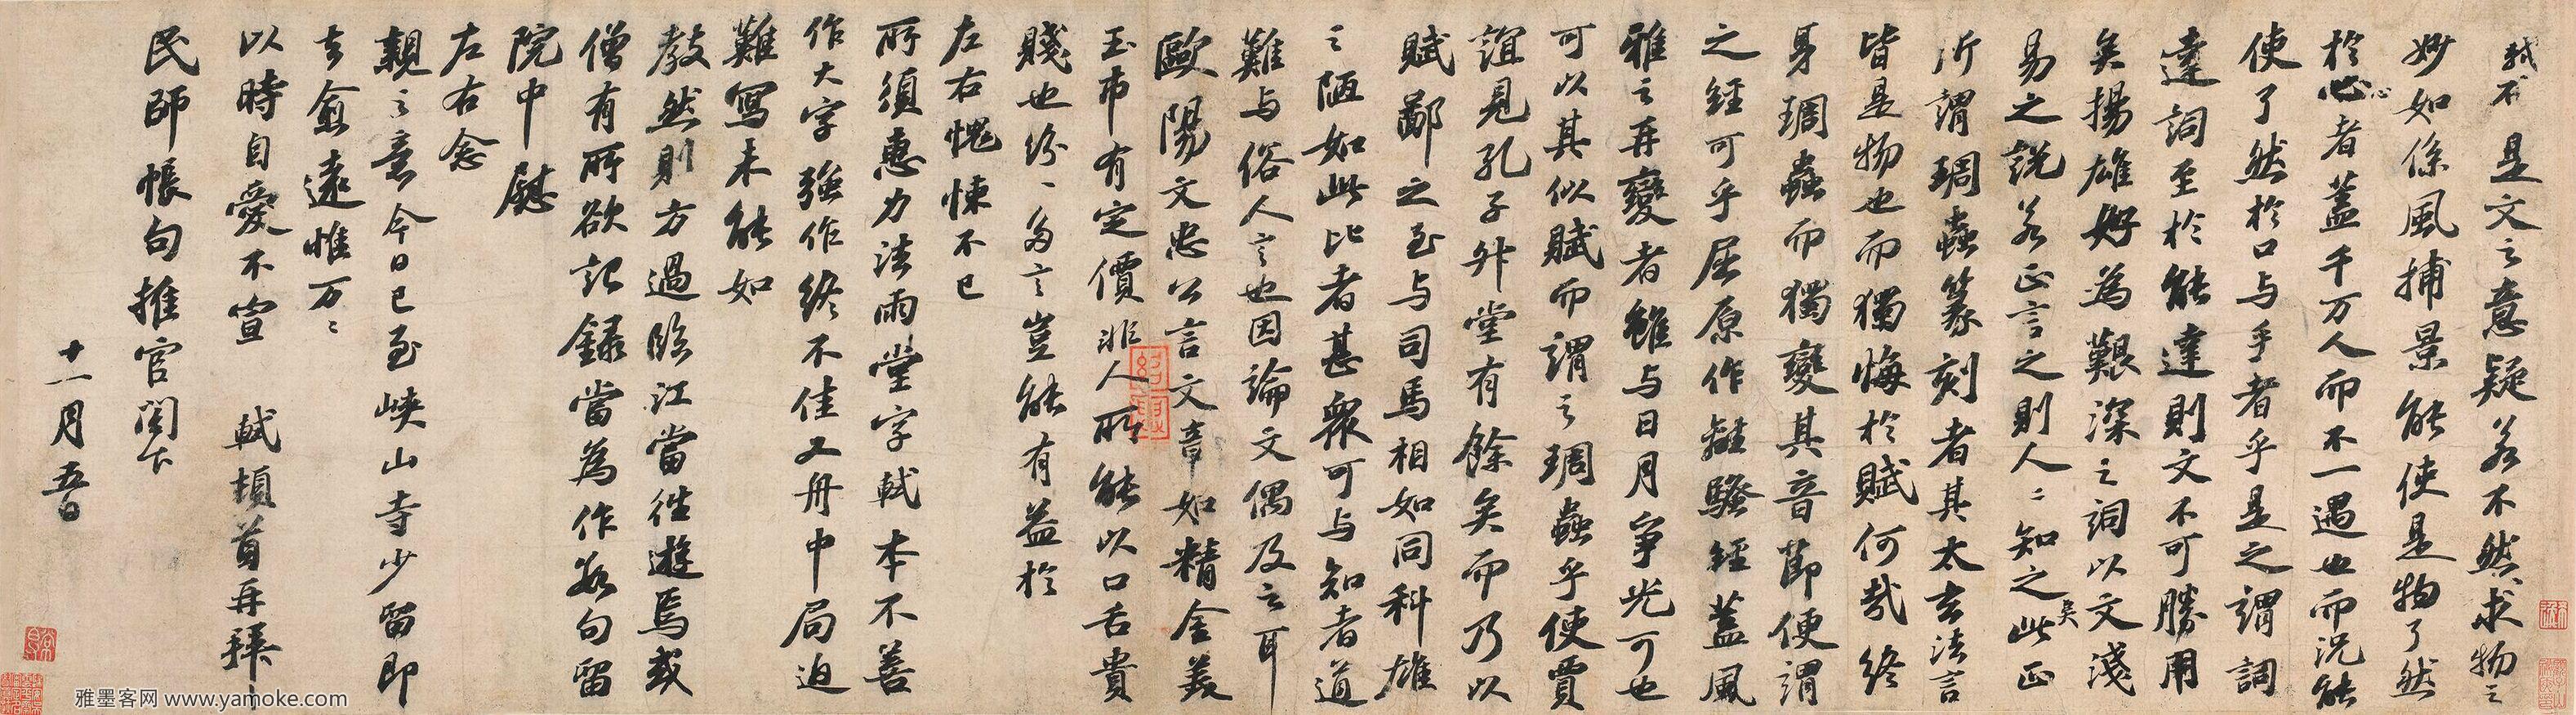 軾不　是文之意疑若不然求物之
妙如係風捕景能使是物了然
於心者蓋千万人而不一遇也而況能
使了然於口与手者乎是之謂詞
達詞至於能達則文不可勝用
矣揚雄好為艱深之詞以文淺
易之說若正言之則人〻知之矣此正
所謂琱蟲篆刻者其太玄法言
皆是物也而獨悔於賦何哉終
身琱蟲而獨變其音節便謂
之經可乎屈原作離騷經蓋風
雅之再變者雖与日月争光可也
可以其似賦而謂之琱蟲乎使賈
誼見孔子升堂有餘矣而乃以
賦鄙之至与司馬相如同科雄
之陋如此比者甚衆可与知者道
難与俗人言也因論文偶及之耳
歐陽文忠公言文章如精金美
玉市有定價非人所能以口舌貴
賤也紛〻多言豈能有益於
左右愧悚不已
所須惠力法雨堂字軾本不善
作大字強作終不佳又舟中局迫
難寫未能如
教然則方過臨江當往遊焉或
僧有所欲記錄當為作數句留
院中慰
左右念
親之意今日已至峽山寺少留即
去愈遠惟万〻
以時自愛不宣　軾頓首再拜
民師帳句推官閤下
十一月五日
雅墨客网 www.yamoke.com